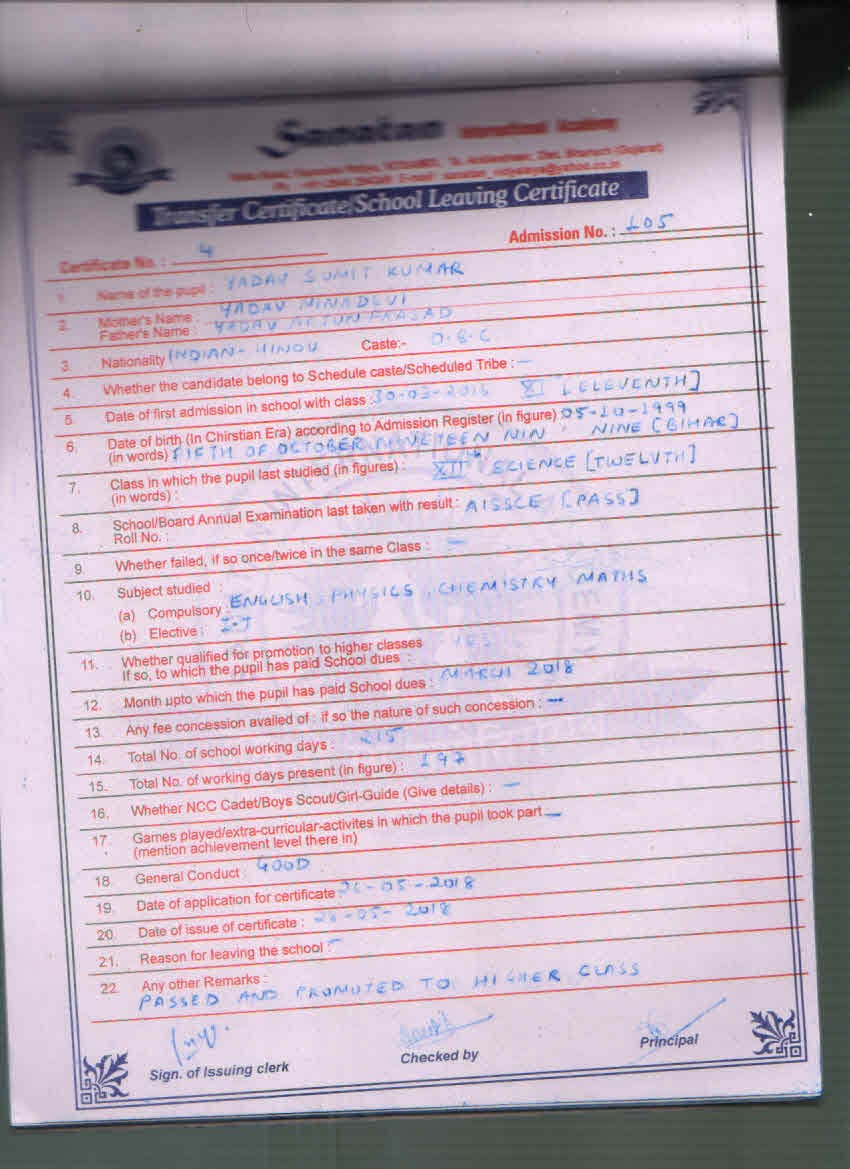 Sanatan International Academy
Transfer Certificate/School Leaving Certificate
Admission No. : 105
Certificate No. : 4
1. Name of the pupil : YADAV SUMIT KUMAR
2. Mother's Name : YADAV MINADEVI
Father's Name : YADAV PRASAD
3. Nationality INDIAN - HINDU Caste:- O.B.C.
4 Whether the candidate belong to Schedule caste/Scheduled Tribe : —
5. Date of first admission in school with class : XI [ELEVENTH]
6. Date of birth (In Chirstian Era) according to Admission Register (in figure) 05-10-1999
(in words) FIFTH OF OCTOBER NINETEEN NIN NINE [BIHAR]
7. Class in which the pupil last studied (in figures) : XII SCIENCE [TWELVTH]
(in words) :
8. School/Board Annual Examination last taken with result : AISSCE [PASS]
Roll No. :
9. Whether failed, if so once/twice in the same Class : —
10. Subject studied :
(a) Compulsory : ENGLISH, PHYSICS, CHEMISTRY MATHS
(b) Elective : I.T
11. Whether qualified for promotion to higher classes YES
If so, to which the pupil has paid School dues :
12. Month upto which the pupil has paid School dues : MARCH 2018
13. Any fee concession availed of : if so the nature of such concession : —
14. Total No. of school working days : 215
15. Total No. of working days present (in figure) : 197
16. Whether NCC Cadet/Boys Scout/Girl-Guide (Give details) : —
17. Games played/extra-curricular-activites in which the pupil took part —
(mention achievement level there in)
18. General Conduct : GOOD
19. Date of application for certificate : -05-2018
20. Date of issue of certificate : -05-2018
21. Reason for leaving the school : —
22. Any other Remarks :
PASSED AND PROMOTED TO HIGHER CLASS
Sign. of Issuing clerk Checked by Principal